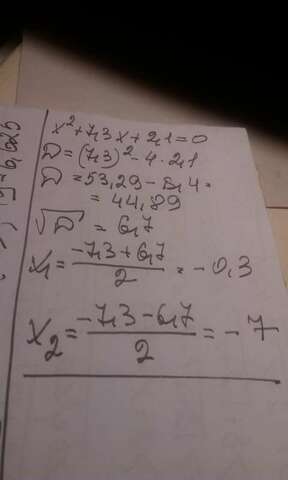 x²+7,3x+2,1=0
D=(7,3)²-4·2,1
D=53,29-8,4=
=44,89
√D = 6,7
x₁=(-7,3+6,7)/2=-0,3
x₂=(-7,3-6,7)/2=-7